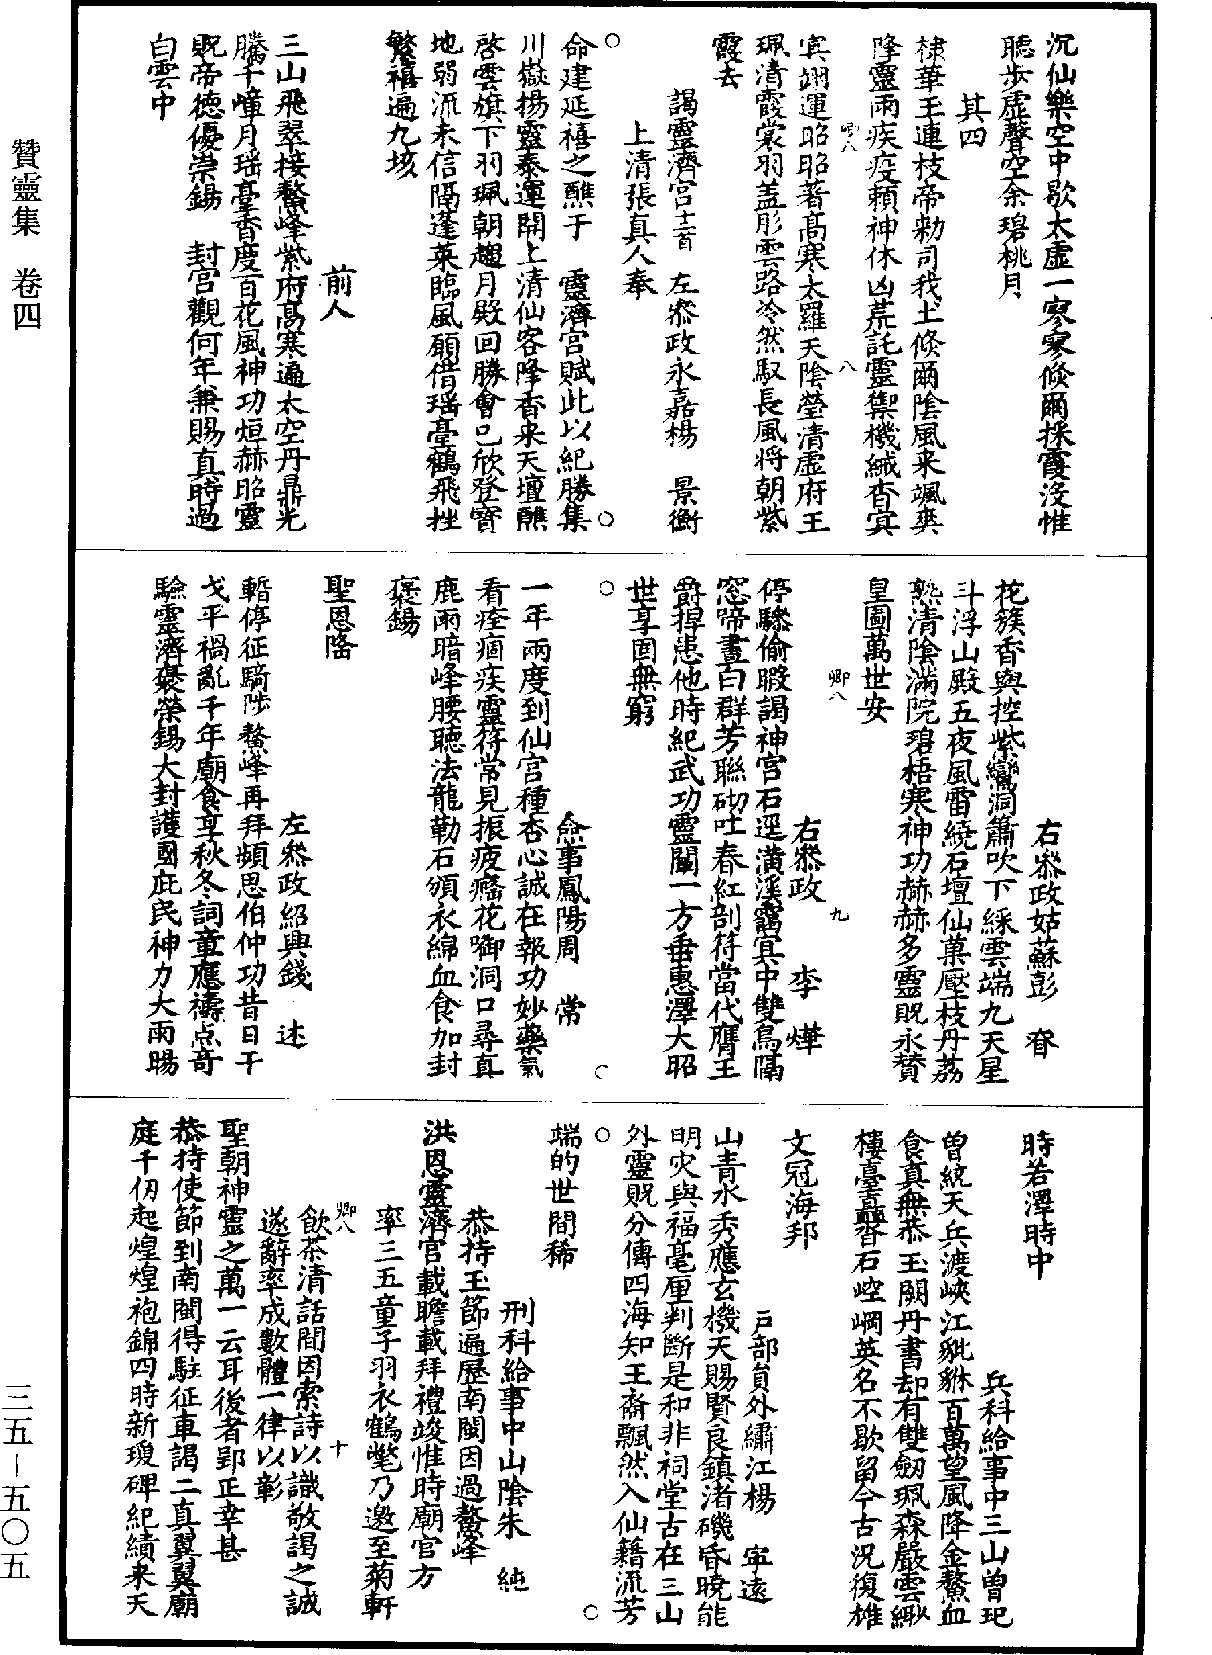 贊靈集 卷四
沉仙樂空中歇太虛一寥寥倏爾採霞沒惟
聽步虛聲空余碧桃月
其四
棣華王連枝帝勑司我土倏爾陰風来颯爽
降靈雨疾疫賴神休凶荒託靈禦機緘杳冥
卿八
八
冥翊運昭昭著高寒太羅天陰瑩清虛府王
珮清霞裳羽盖彤雲路冷然馭長風將朝紫
霞去
謁靈濟宮十二首 左叅政永嘉楊 景衡
上清張真人奉
命建延禧之醮于 靈濟宮賦此以紀勝集
川嶽揚靈泰運開上清仙客降香来天壇醮
啓雲旗下羽珮朝趨月殿回勝會已欣登寶
地弱流未信隔蓬萊臨風願借瑶臺鶴飛挫
繁禧遍九垓
前人
三山飛翠接鰲峰紫府高寒遍太空丹鼎光
騰千嶂月瑶臺香度百花風神功烜赫昭靈
貺帝德優崇錫 封宮觀何年兼賜真時過
白雲中
右叅政姑蘇彭 𣈆
花簇香輿控紫鸞洞簫吹下綵雲端九天星
斗浮山殿五夜風雷繞石壇仙菓壓枝丹荔
熟清陰滿院碧梧寒神功赫赫多靈貺永贊
皇圖萬世安
卿八
九
右叅政 李 燁
停驂偷暇謁神宮石逕潢溪靄冥中雙鳥隔
窓啼晝白群芳聯砌吐春紅剖符當代膺王
爵捍患他時紀武功靈闡一方垂惠澤大昭
世享固無窮
僉事鳳陽周 常
一年兩度到仙宮種杏心誠在報功妙藥氣
看痊痼疾靈符常見振疲癃花啣洞口尋真
鹿雨暗峰腰聽法龍勒石頒衣綿血食加封
褒錫
聖恩隆
左叅政紹興錢 述
暫停征騎陟鰲峰再拜頻思伯仲功昔日干
戈平禍亂千年廟食享秋冬詞章應禱点奇
驗靈濟褒榮錫大封護國庇民神力大雨暘
時若澤時中
兵科給事中三山曾玘
曾統天兵渡峽江貔貅百萬望風降金鰲血
食真無恭玉闕丹書却有雙劒珮森嚴雲緻
樓臺矗響石崆㟠英名不歇留今古況復雄
文冠海邦
戶部員外繡江楊 寧遠
山青水秀應玄機天賜賢良鎮渚磯昏曉能
明灾與福毫厘判斷是和非祠堂古在三山
外靈貺分傳四海知王裔飄然入仙籍流芳
端的世間稀
刑科給事中山陰朱 純
恭持玉節遍歷南閩因過鰲峰
洪恩靈濟宮載瞻載拜禮竣惟時廟官方
率三五童子羽衣鶴氅乃邀至菊軒
卿八
十
飲茶清話間因索詩以識敬謁之誠
遂辭率成數體一律以彰
聖朝神靈之萬一云耳後者郢正幸甚
恭持使節到南閩得駐征車謁二真翼翼廟
庭千仞起煌煌袍錦四時新瓊碑紀績来天
三五－五〇五